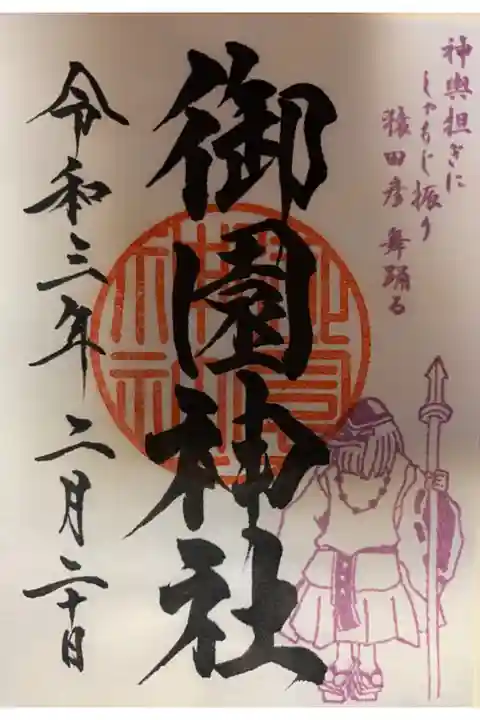 神輿担ぎに
しゃもじ振り
猿田彦 舞踊る
御園神社
令和三年 二月二十日